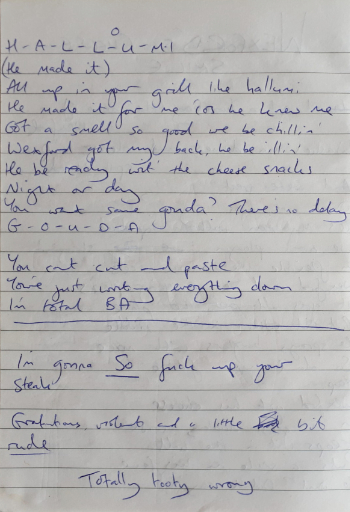 O
H-A-L-L-U-M-I
(He made it)
All up in your grill like hallumi
He made it for me 'cos he knew me
Got a smell so good we be chillin'
Wexford got my back, he be illin'
He be ready wit' the cheese snacks
Night or day
You want some gouda? There's no delay
G-O-U-D-A
You cut cut and paste
You're just writing everything down
In total BA
I'm gonna So fuck up your
steak
Gratuitous violent and a little bit
rude
Totally tooty wrong